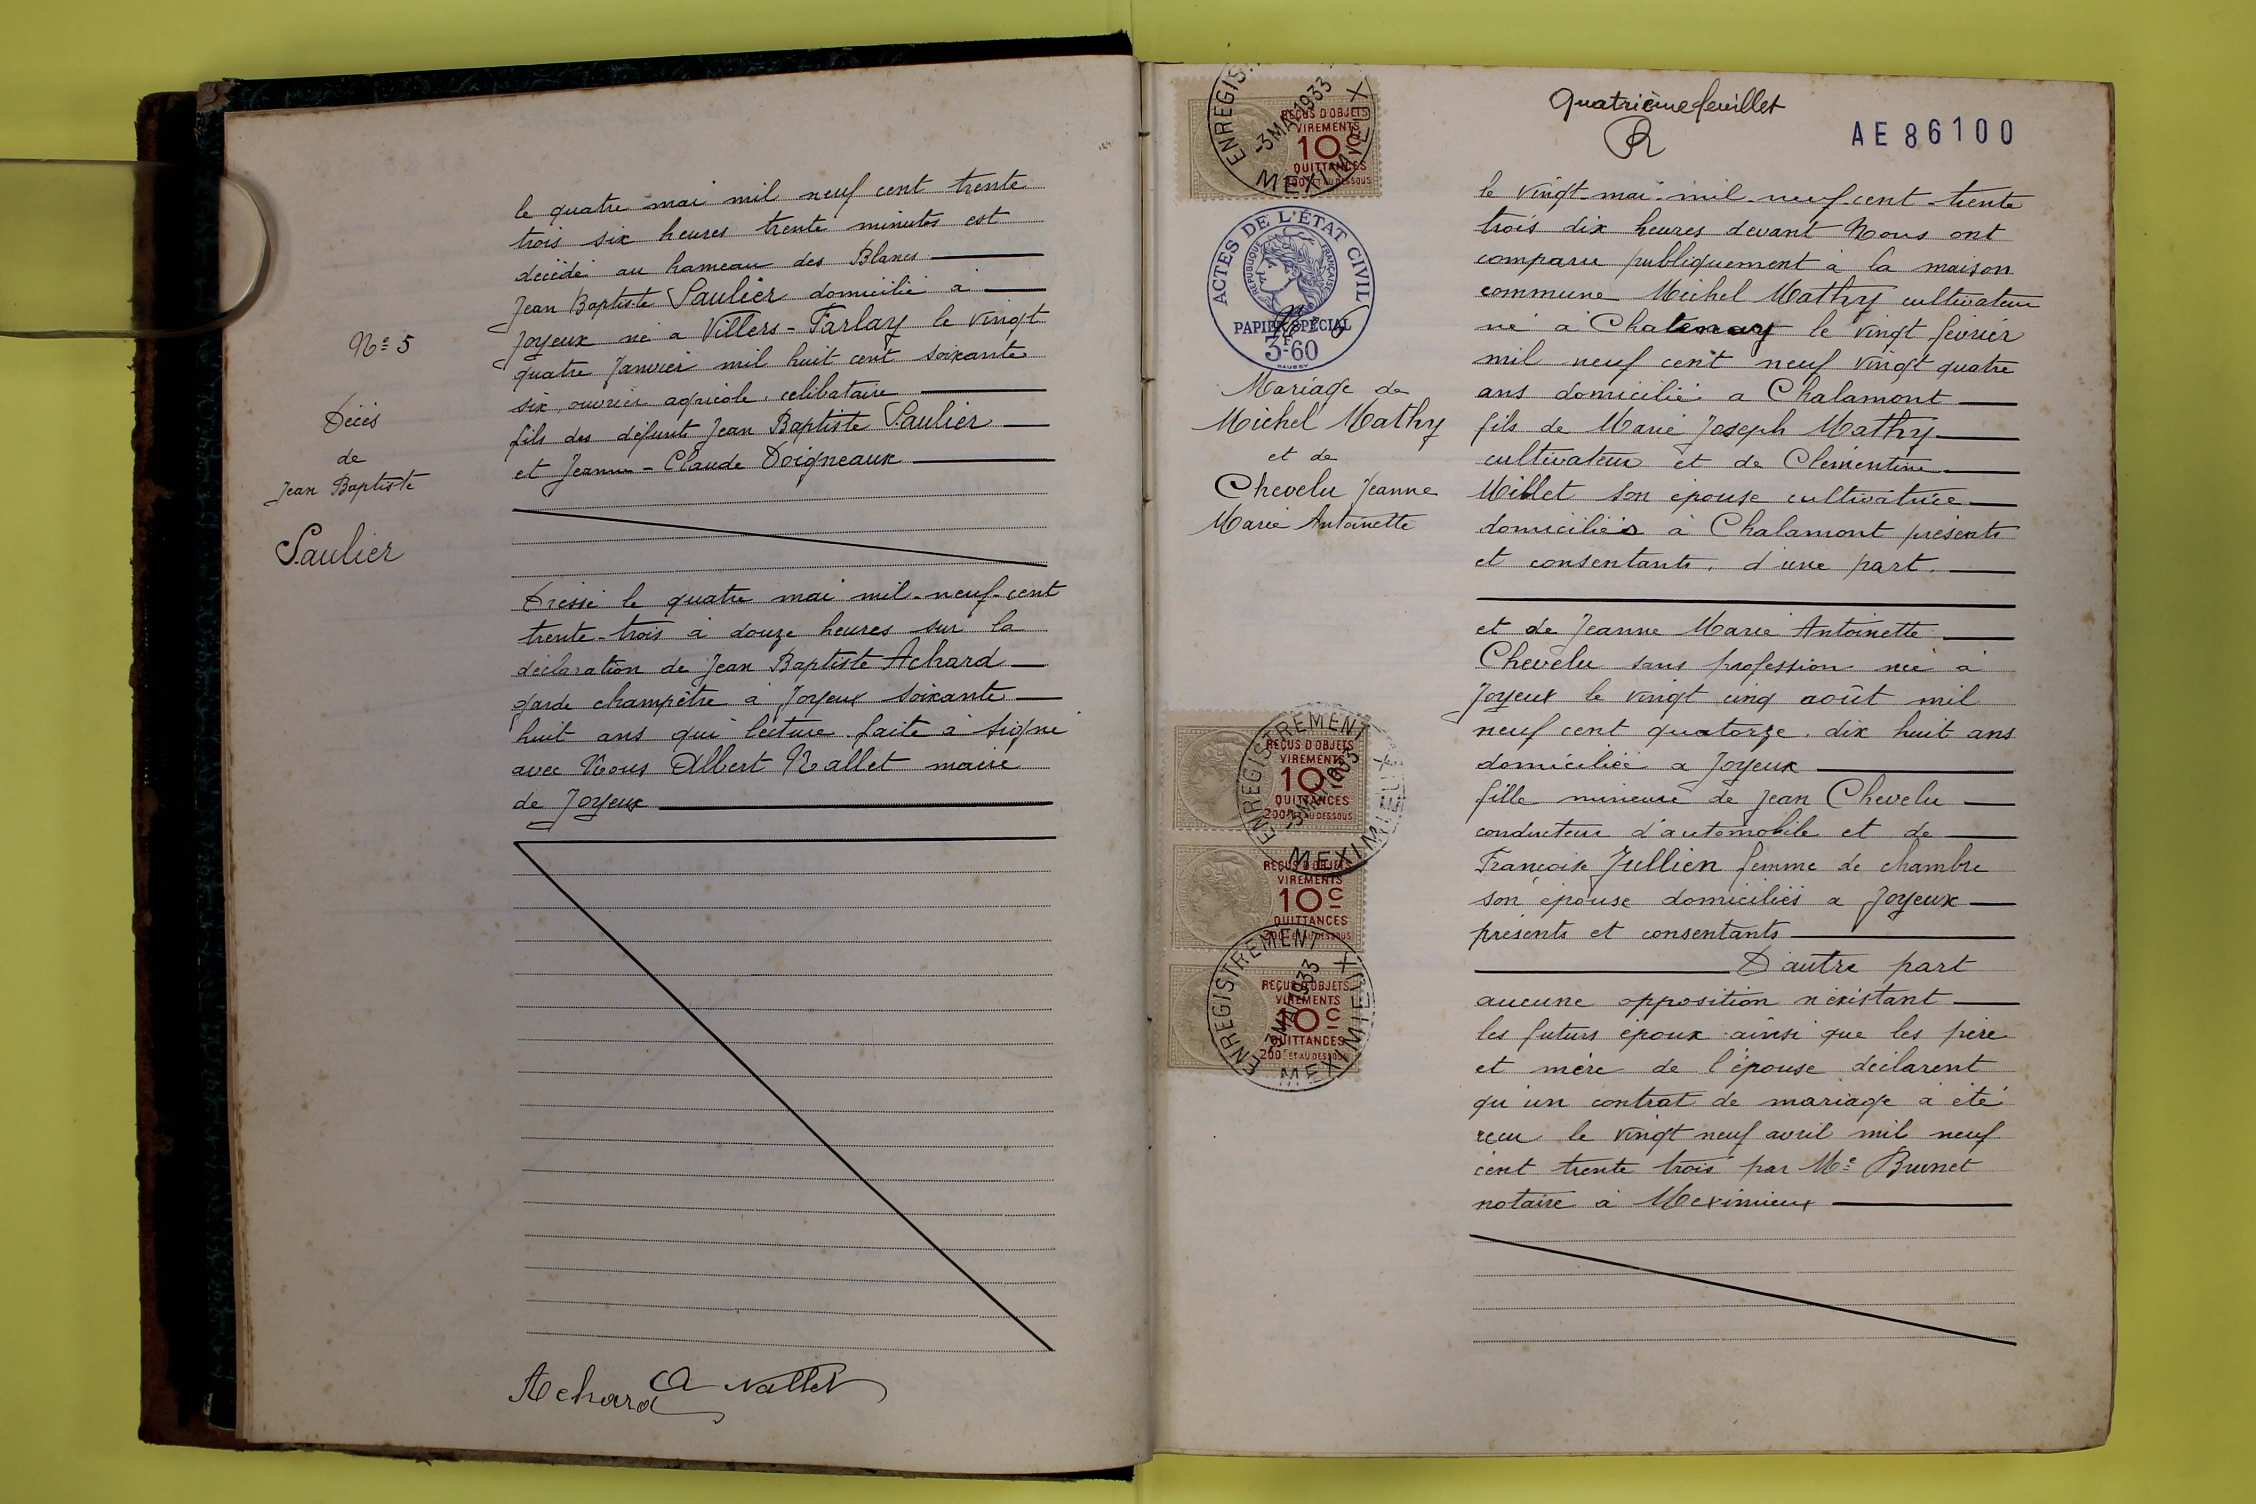 N° 5
Décès
de
Jean Baptiste
Saulier
le quatre mai mil neuf cent trente
trois six heures trente minutes est
décédé au hameau des Blancs
Jean Baptiste Saulier domicilié à
Joyeux né à Villers-Farlay le vingt
quatre Janvier mil huit cent soixante
six, ouvrier agricole, celibataire
fils des défunts Jean Baptiste Saulier
et Jeanne-Claude Doigneaux
Dressé le quatre mai mil-neuf-cent
trente-trois à douze heures sur la
déclaration de Jean Baptiste Achard
garde champêtre à Joyeux soixante
huit ans qui lecture faite à signé
avec Nous Albert Nallet maire
de Joyeux
Achard A Nallet
Quatrième feuillet
AE 86100
ENREGISTREMENT
-3 MAI 1933
MEXIMIEUX
REÇUS D'OBJETS
VIREMENTS
10c
QUITTANCES
200F ET AU DESSOUS
ACTES DE L'ÉTAT CIVIL
RÉPUBLIQUE FRANÇAISE
PAPIER SPÉCIAL
3F60
Mariage de
Michel Mathy
et de
Chevelu Jeanne
Marie Antoinette
ENREGISTREMENT
-3 MAI 1933
MEXIMIEUX
REÇUS D'OBJETS
VIREMENTS
10c
QUITTANCES
200F ET AU DESSOUS
REÇUS D'OBJETS
VIREMENTS
10c
QUITTANCES
200F ET AU DESSOUS
ENREGISTREMENT
-3 MAI 1933
MEXIMIEUX
REÇUS D'OBJETS
VIREMENTS
10c
QUITTANCES
200F ET AU DESSOUS
le vingt-mai-mil-neuf-cent-trente
trois dix heures devant Nous ont
comparu publiquement à la maison
commune Michel Mathy cultivateur
né à Chatenay le vingt février
mil neuf cent neuf vingt quatre
ans domicilié a Chalamont
fils de Marie Joseph Mathy
cultivateur et de Clémentine
Millet son épouse cultivatrice
domiciliés à Chalamont présents
et consentants, d'une part.
et de Jeanne Marie Antoinette
Chevelu sans profession née à
Joyeux le vingt cinq août mil
neuf cent quatorze, dix huit ans
domiciliée a Joyeux
fille mineure de Jean Chevelu
conducteur d'automobile et de
Françoise Jullien femme de chambre
son épouse domiciliés a Joyeux
présents et consentants
D'autre part
aucune opposition n'existant
les futurs époux ainsi que les père
et mère de l'épouse déclarent
qu'un contrat de mariage a été
recu le vingt neuf avril mil neuf
cent trente trois par Me Brunet
notaire à Meximieux